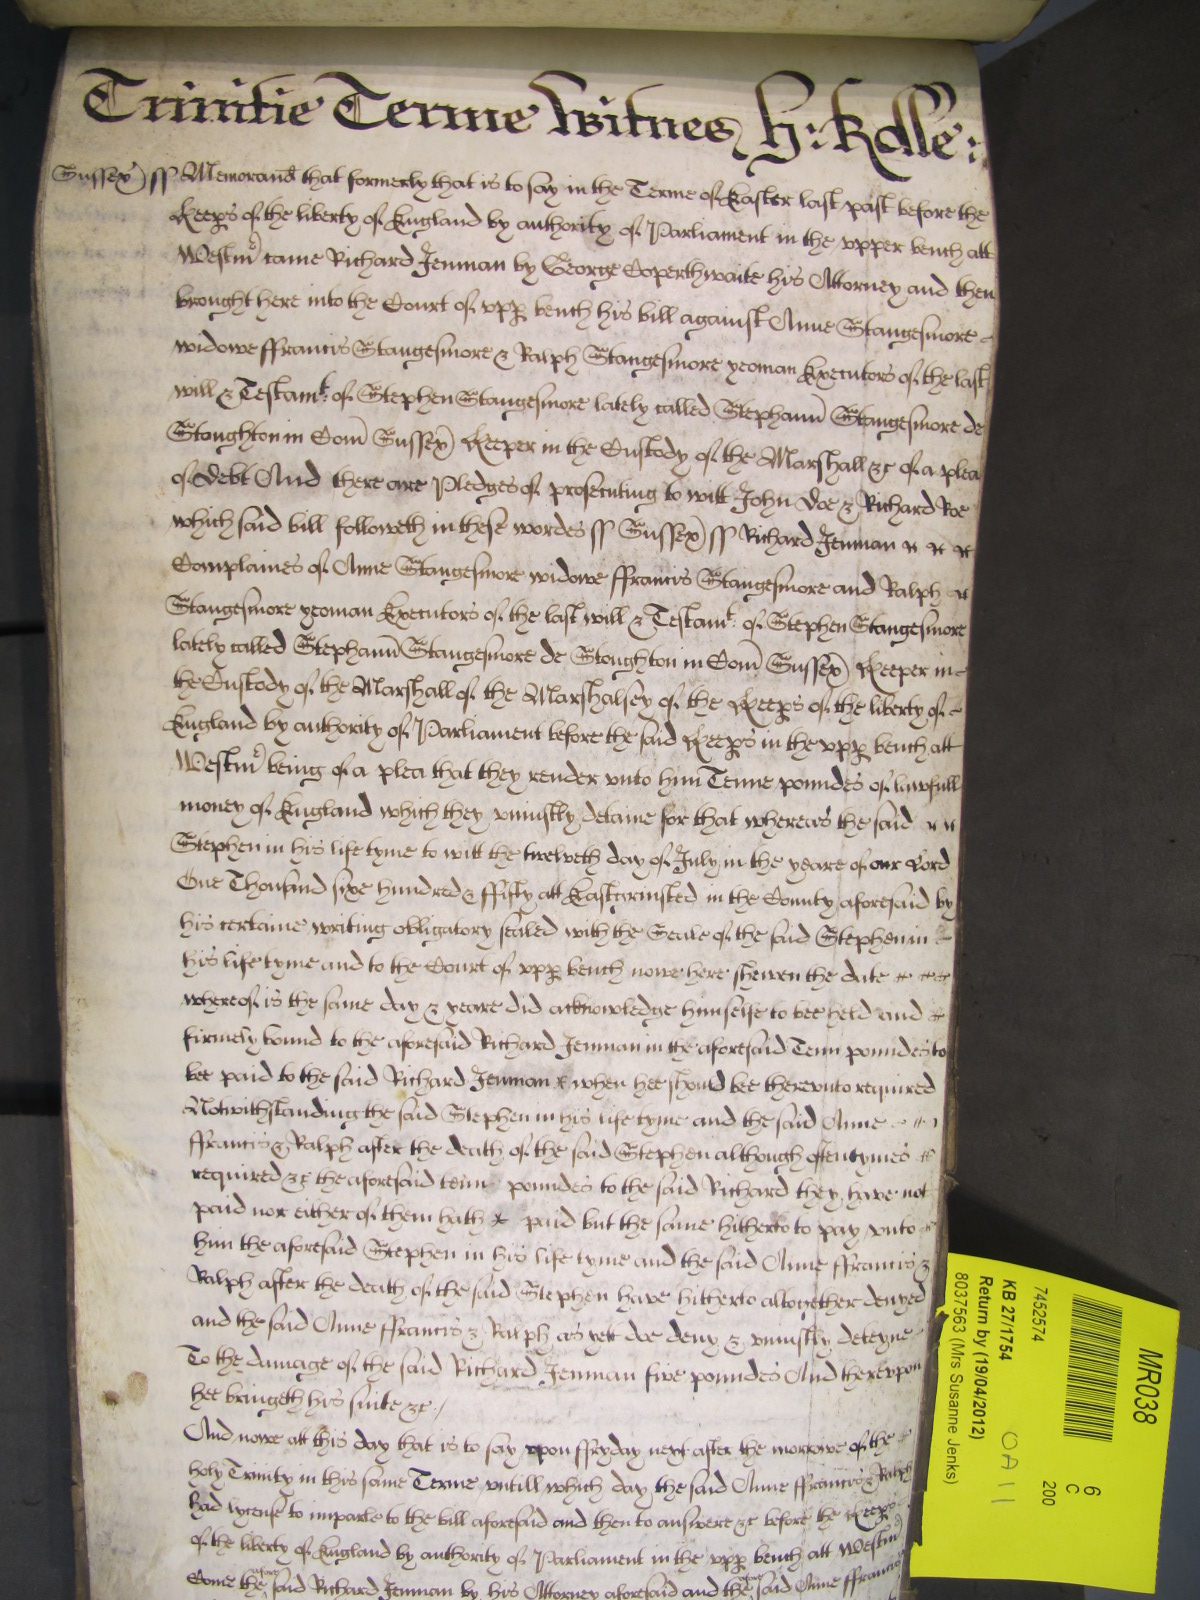 Trinitie Terme Witnes H: Rolle:
Sussex) ss Memorand that formerly that is to say in the Terme of Easter last past before the
Keeps of the liberty of England by authority of Parliament in the upper bench att
Westm came Richard Jenman by George Coperthwaite his Attorney and then
brought here into the Court of upp bench his bill against Anne Stangesmore
widowe ffrancis Stangesmore & Ralph Stangesmore yeoman Executors of the last
will & Testamt of Stephen Stangesmore lately called Stephann Stangesmore de
Stoughton in Com Sussex) Keeper in the Custody of the Marshall &c of a plea
of debt And there are Pledges of prosecuting to witt John Doe & Richard Roe
which said bill followeth in these wordes ss Sussex) ss Richard Jenman
Complaines of Anne Stangesmore widowe ffrancis Stangesmore and Ralph
Stangesmore yeoman Executors of the last will & Testamt of Stephen Stangesmore
lately called Stephann Stangesmore de Stoughton in Com Sussex) Keeper in
the Custody of the Marshall of the Marshalsey of the Keeps of the liberty of
England by authority of Parliament before the said Keeps in the upp bench att
Westm being of a plea that they render unto him Tenne poundes of lawfull
money of England which they uniustly detaine for that whereas the said
Stephen in his life tyme to witt the twelveth day of July in the yeare of our Lord
One Thousand sixe hundred & ffifty att Eastgrinsted in the County aforesaid by
his certaine writing obligatory sealed with the Seale of the said Stephen in
his life tyme and to the Court of upp bench nowe here shewen the date
whereof is the same day & yeare did acknowledge himselfe to bee held and
firmely bound to the aforesaid Richard Jenman in the aforesaid Tenn poundes to
bee paid to the said Richard Jenman when hee should bee thereunto required
Notwithstanding the said Stephen in his life tyme and the said Anne
ffrancis & Ralph after the death of the said Stephen although oftentymes
required &c the aforesaid tenn poundes to the said Richard they have not
paid nor either of them hath paid but the same hitherto to pay unto
him the aforesaid Stephen in his life tyme and the said Anne ffrancis &
Ralph after the death of the said Stephen have hitherto altogether denyed
and the said Anne ffrancis & Ralph as yett doe deny & uniustly deteyne
To the damage of the said Richard Jenman five poundes And thereupon
hee bringeth his suite &c /
And nowe att this day that is to say upon ffryday next after the morrowe of the
holy Trinity in this same Terme untill which day the said Anne ffrancis & Ralph
had lycense to imparle to the bill aforesaid and then to answere &c before the Keeps
of the liberty of England by authority of Parliament in the upp bench att Westm
Come the said Richard Jenman by his Attorney aforesaid and the said Anne ffrancis
MR038
7452574
KB 27/1754
Return by (19/04/2012)
8037563 (Mrs Susanne Jenks)
6
C
200
OA 11